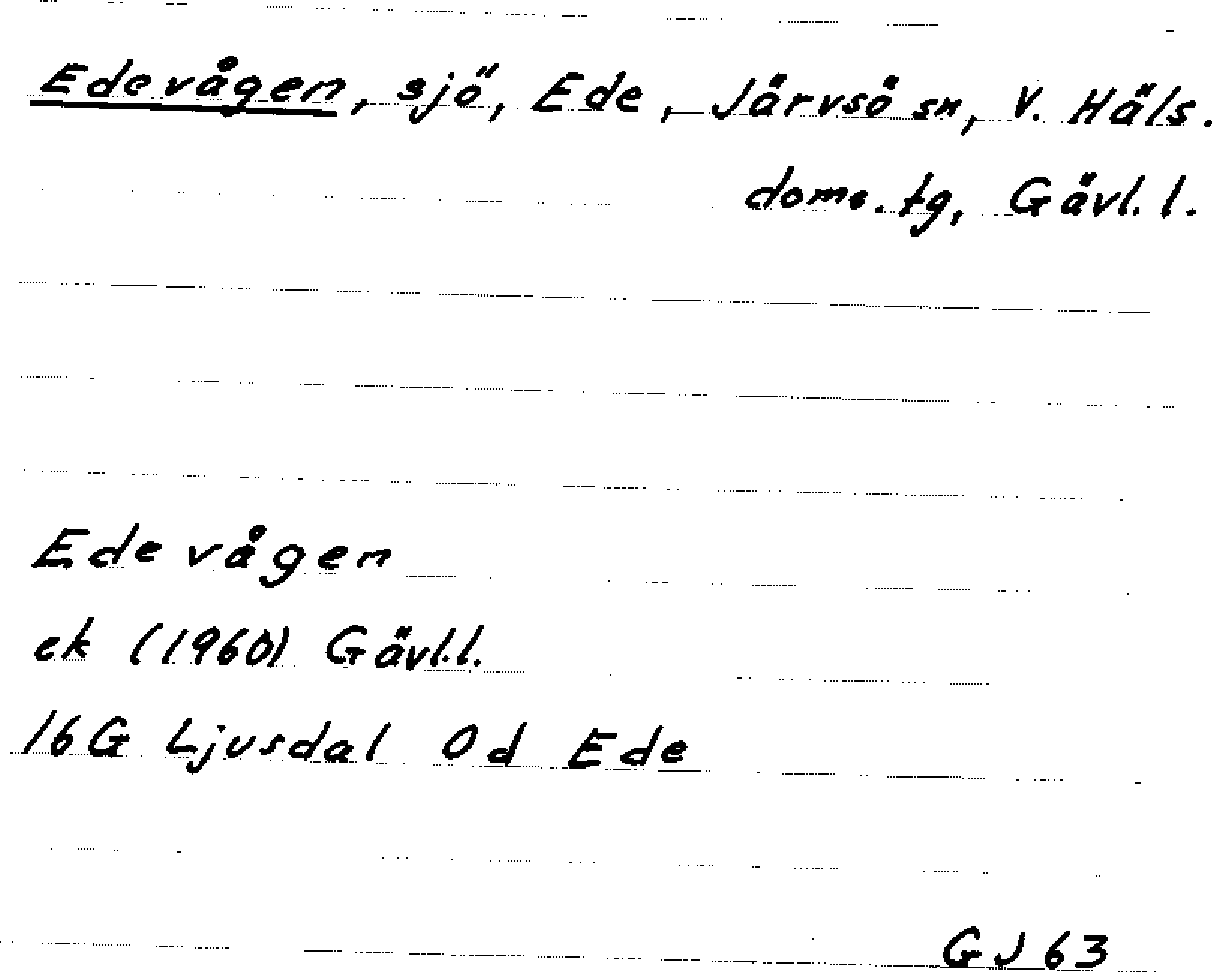 Edevågen, sjö, Ede, Järvsö sn, V. Häls.
doms.tg, Gävl. l.
Edevågen
ek (1960) Gävl.l.
16G Ljusdal 0d Ede
GJ 63